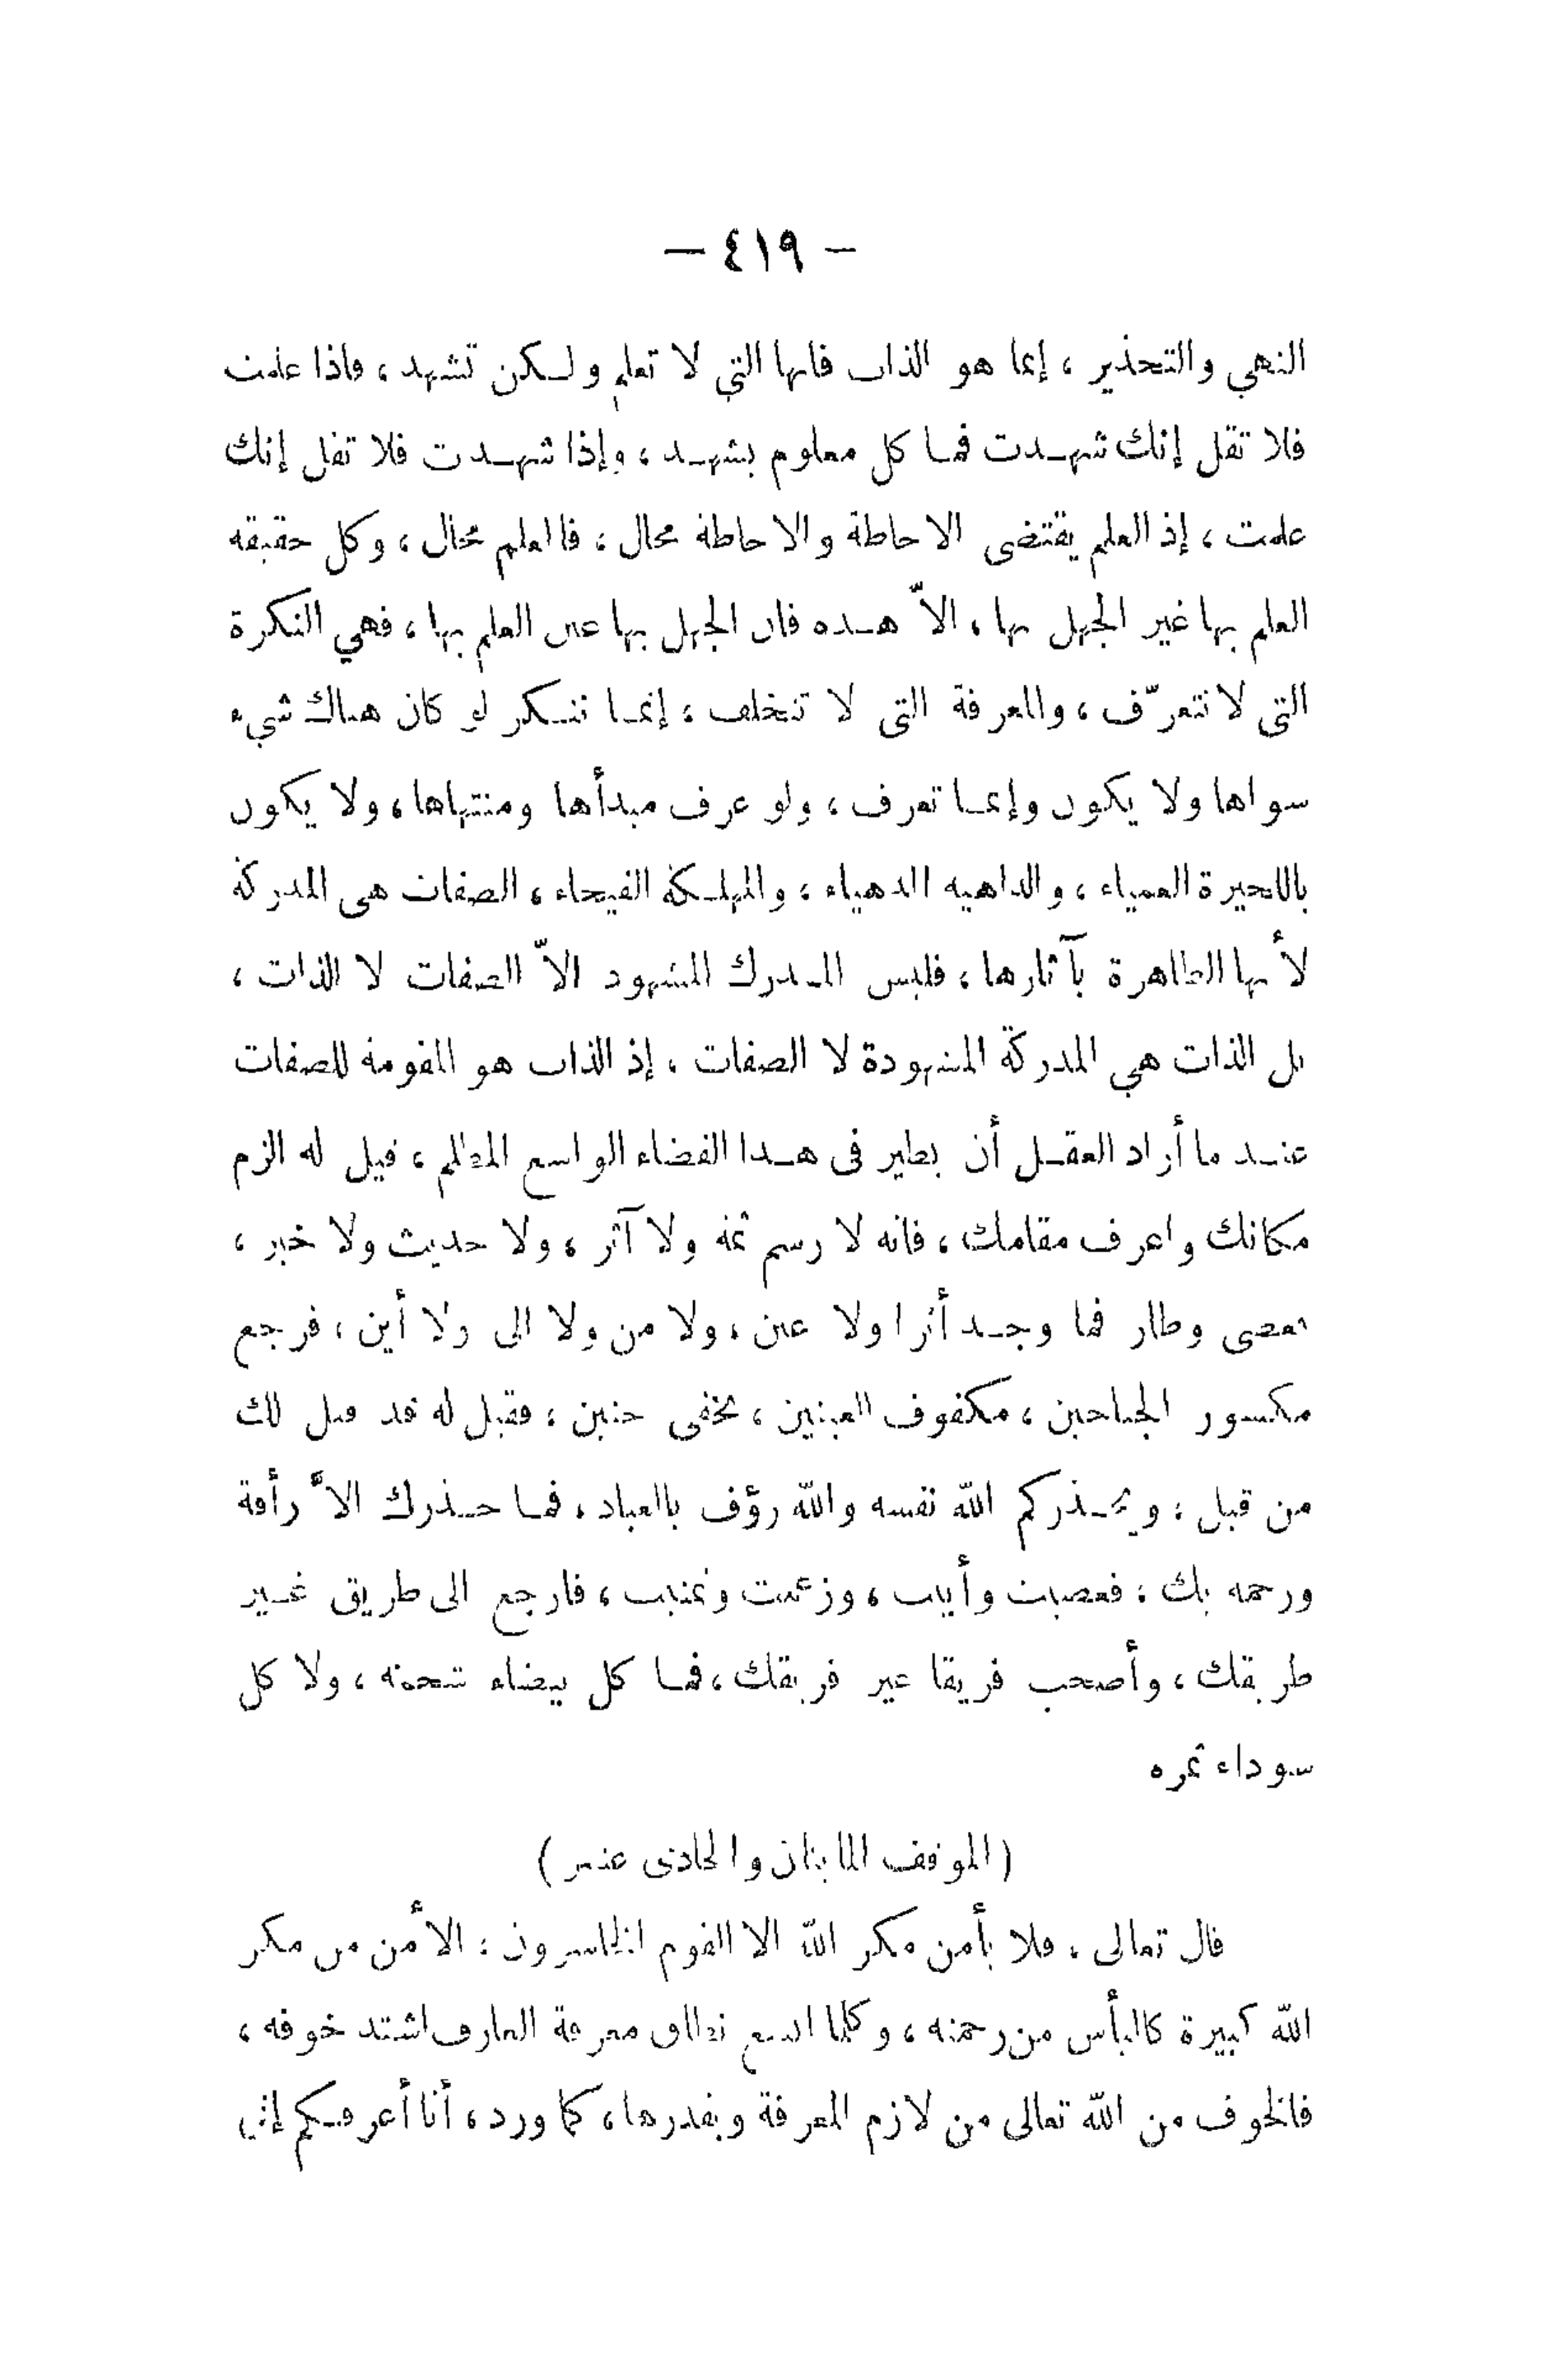 — ٤١٩ —
النهي والتحذير ، إنما هو الذات فانها التي لا تعلم ولكن تشهد ، فاذا علمت
فلا تقل إنك شهدت فما كل معلوم يشهد ، وإذا شهدت فلا تقل إنك
علمت ، إذ العلم يقتضى الاحاطة والاحاطة محال ، فالعلم محال ، وكل حقيقة
العلم بها غير الجهل بها ، الاّ هذه فان الجهل بها عين العلم بها ، فهي النكرة
التى لا تتعرّف ، والمعرفة التى لا تتخلف ، إنما تنكر لو كان هناك شيء
سواها ولا يكون وإنما تعرف ، ولو عرف مبدأها ومنتهاها ، ولا يكون
باللحيرة العمياء ، والداهية الدهياء ، والمهلكة الفيحاء ، الصفات هى المدركة
لأنها الظاهرة بآثارها ، فليس المدرك المشهود الاّ الصفات لا الذات ،
بل الذات هي المدركة المشهودة لا الصفات ، إذ الذات هو المقومة للصفات
عند ما أراد العقل أن يطير فى هذا الفضاء الواسع المظلم ، قيل له الزم
مكانك واعرف مقامك ، فانه لا رسم ثمة ولا آثر ، ولا حديث ولا خبر ،
فعصى وطار فما وجد أثرا ولا عين ، ولا من ولا الى ولا أين ، فرجع
مكسور الجناحين ، مكفوف العينين ، بخفى حنين ، فقيل له قد قيل لك
من قبل ، ويحذركم الله نفسه والله رؤف بالعباد ، فما حذرك الاّ رأفة
ورحمة بك ، فعصيت وأبيت ، وزعمت وتمنيت ، فارجع الى طريق غير
طريقك ، وأصحب فريقا غير فريقك ، فما كل بيضاء شحمة ، ولا كل
سوداء تمره
( الموقف المايتان والحادى عشر )
قال تعالى ، فلا يأمن مكر الله الا القوم الخاسرون : الأمن من مكر
الله كبيرة كاليأس من رحمته ، وكلما اتسع نطاق معرفة العارف اشتد خوفه ،
فالخوف من الله تعالى من لازم المعرفة وبقدرها ، كما ورد ، أنا أعرفكم